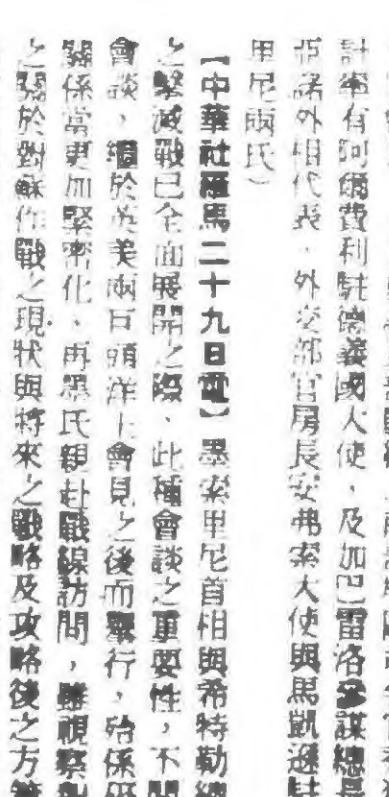 計畫有阿爾費利駐德義國大使、及加巴雷洛參謀總長
亞諾外相代表、外交部官房長安弗索大使與馬凱遜駐
里尼兩氏）
【中華社羅馬二十九日電】墨索里尼首相與希特勒總
之擊滅戰已全面展開之際、此種會談之重要性、不
會談、繼於英美兩巨頭洋上會見之後而舉行、殆係
關係當更加緊密化、再墨氏親赴戰線訪問、雖視察
之關於對蘇作戰之現狀與將來之戰略及攻略後之方